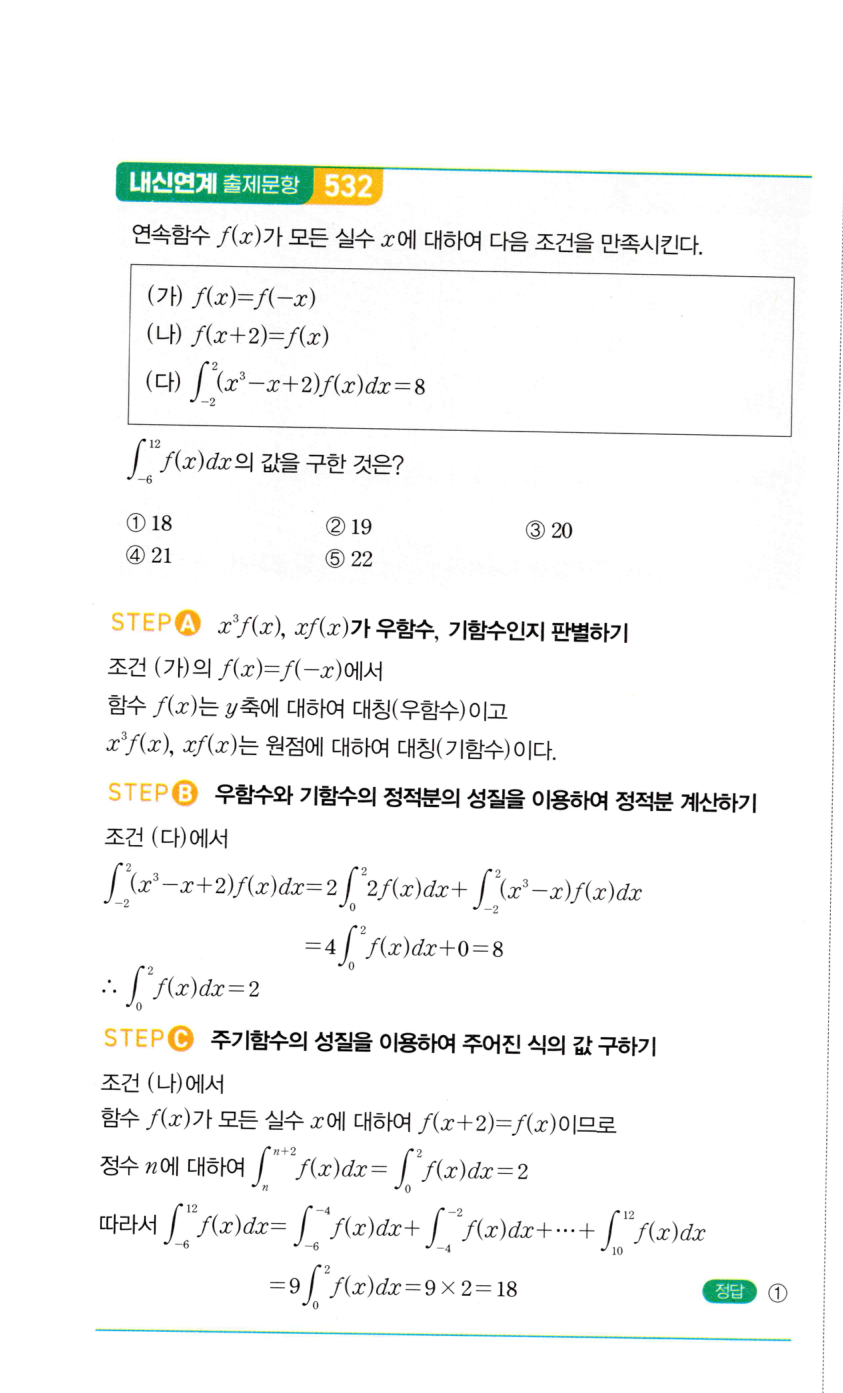 내신연계 출제문항 532
연속함수 f(x)가 모든 실수 x에 대하여 다음 조건을 만족시킨다.
(가) f(x)=f(−x)
(나) f(x+2)=f(x)
(다) ∫_{−2}^{2}(x³−x+2)f(x)dx=8
∫_{−6}^{12} f(x)dx의 값을 구한 것은?
① 18 ② 19 ③ 20
④ 21 ⑤ 22
STEP A x³f(x), xf(x)가 우함수, 기함수인지 판별하기
조건 (가)의 f(x)=f(−x)에서
함수 f(x)는 y축에 대하여 대칭(우함수)이고
x³f(x), xf(x)는 원점에 대하여 대칭(기함수)이다.
STEP B 우함수와 기함수의 정적분의 성질을 이용하여 정적분 계산하기
조건 (다)에서
∫_{−2}^{2}(x³−x+2)f(x)dx=2∫_{0}^{2}2f(x)dx+∫_{−2}^{2}(x³−x)f(x)dx
=4∫_{0}^{2}f(x)dx+0=8
∴ ∫_{0}^{2}f(x)dx=2
STEP C 주기함수의 성질을 이용하여 주어진 식의 값 구하기
조건 (나)에서
함수 f(x)가 모든 실수 x에 대하여 f(x+2)=f(x)이므로
정수 n에 대하여 ∫_{n}^{n+2}f(x)dx=∫_{0}^{2}f(x)dx=2
따라서 ∫_{−6}^{12}f(x)dx=∫_{−6}^{−4}f(x)dx+∫_{−4}^{−2}f(x)dx+⋯+∫_{10}^{12}f(x)dx
=9∫_{0}^{2}f(x)dx=9×2=18 정답 ①